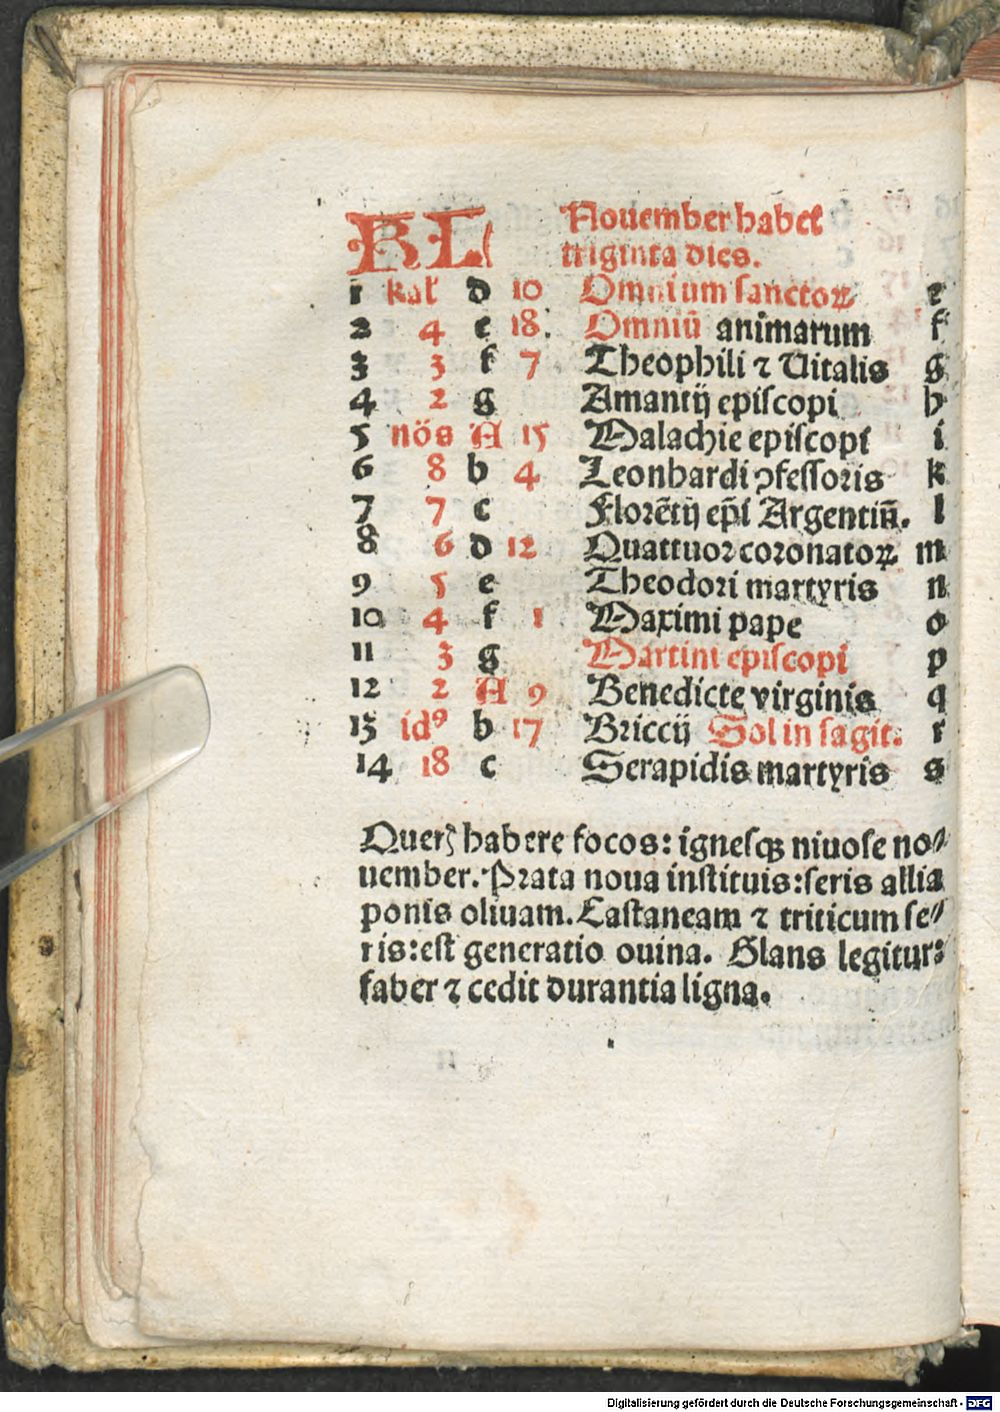 KL Nouember habet
triginta dies.
1 kal d 10 Omnium sanctoꝝ e
2 4 e 18. Omniū animarum f
3 3 f 7 Theophili ⁊ Uitalis g
4 2 g Amantij episcopi h
5 nōs A 15 Malachie episcopi i
6 8 b 4 Leonhardi ꝯfessoris k
7 7 c Florētij ep̄i Argentiñ. l
8 6 d 12 Quattuor coronatoꝝ m
9 5 e Theodori martyris n
10 4 f 1 Maximi pape o
11 3 g Martini episcopi p
12 2 A 9 Benedicte virginis q
13 idꝰ b 17 Briccij Sol in sagit. r
14 18 c Serapidis martyris s
Querꝭ habere focos: ignesqꝫ niuose no⸗
uember. Prata noua instituis: seris allia
ponis oliuam. Castaneam ⁊ triticum se⸗
ris: est generatio ouina. Glans legitur:
faber ⁊ cedit durantia ligna.
Digitalisierung gefördert durch die Deutsche Forschungsgemeinschaft - DFG